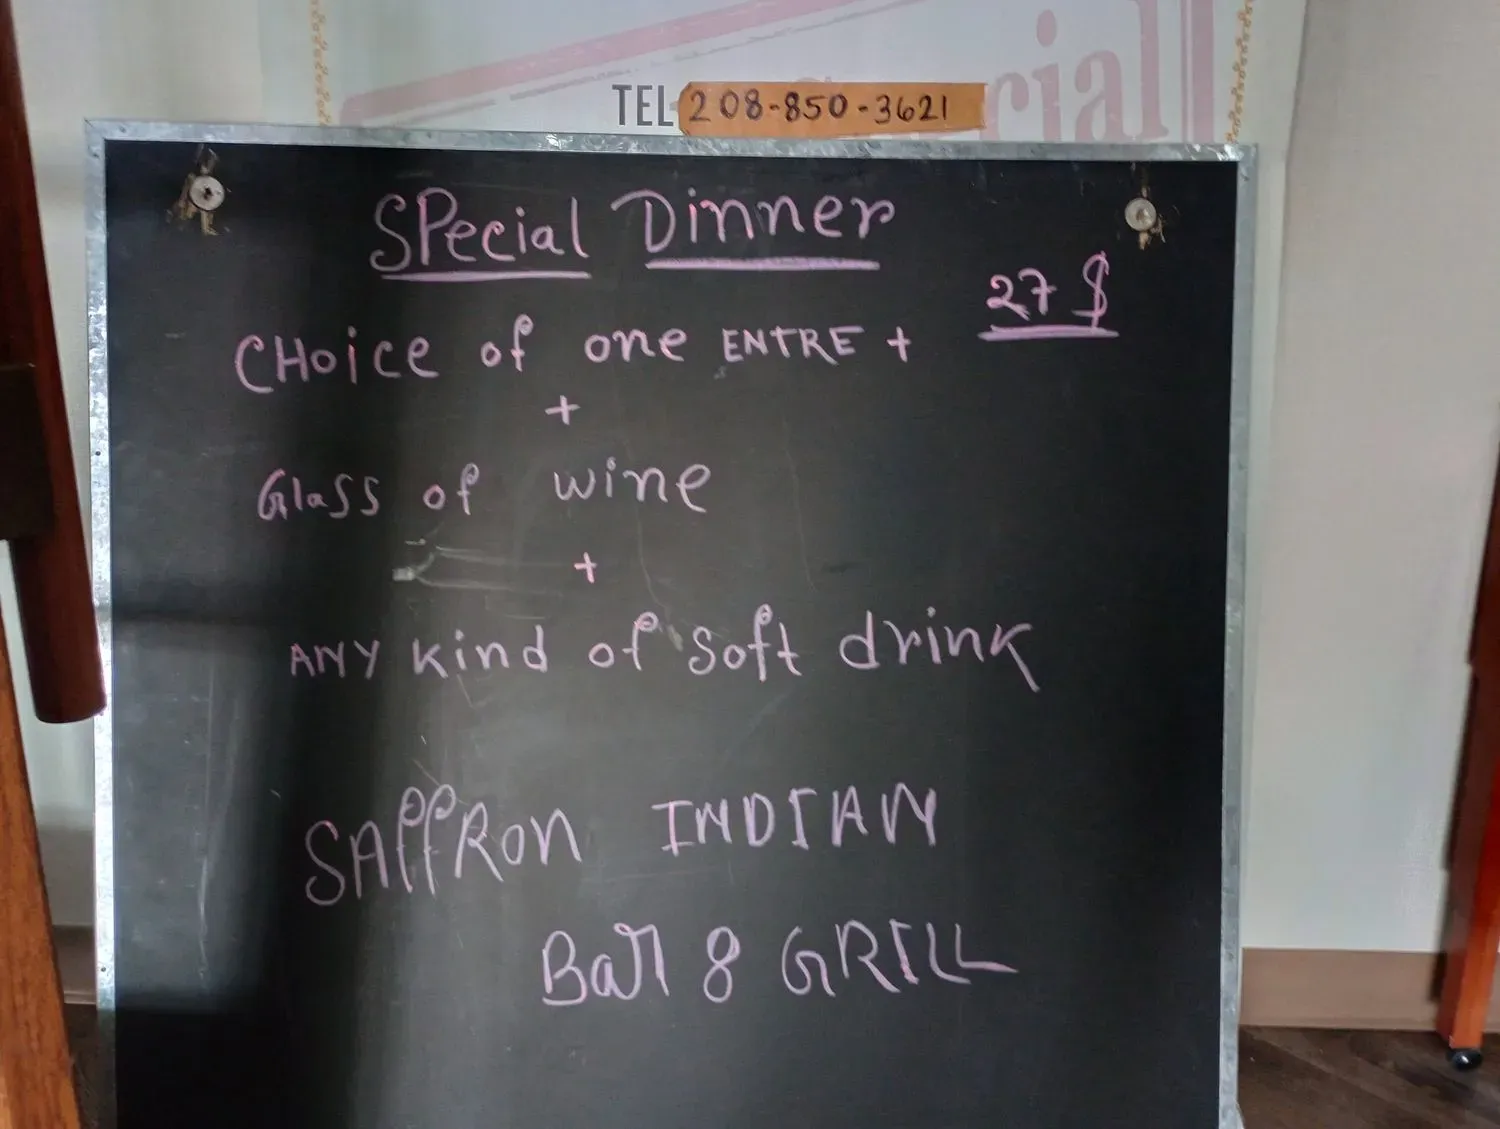 TEL 208-850-3621
SPecial Dinner
27 $
CHoice of one ENTRE +
+
Glass of wine
+
ANY kind of soft drink
SAffRon INDIAN
Bar & GRILL